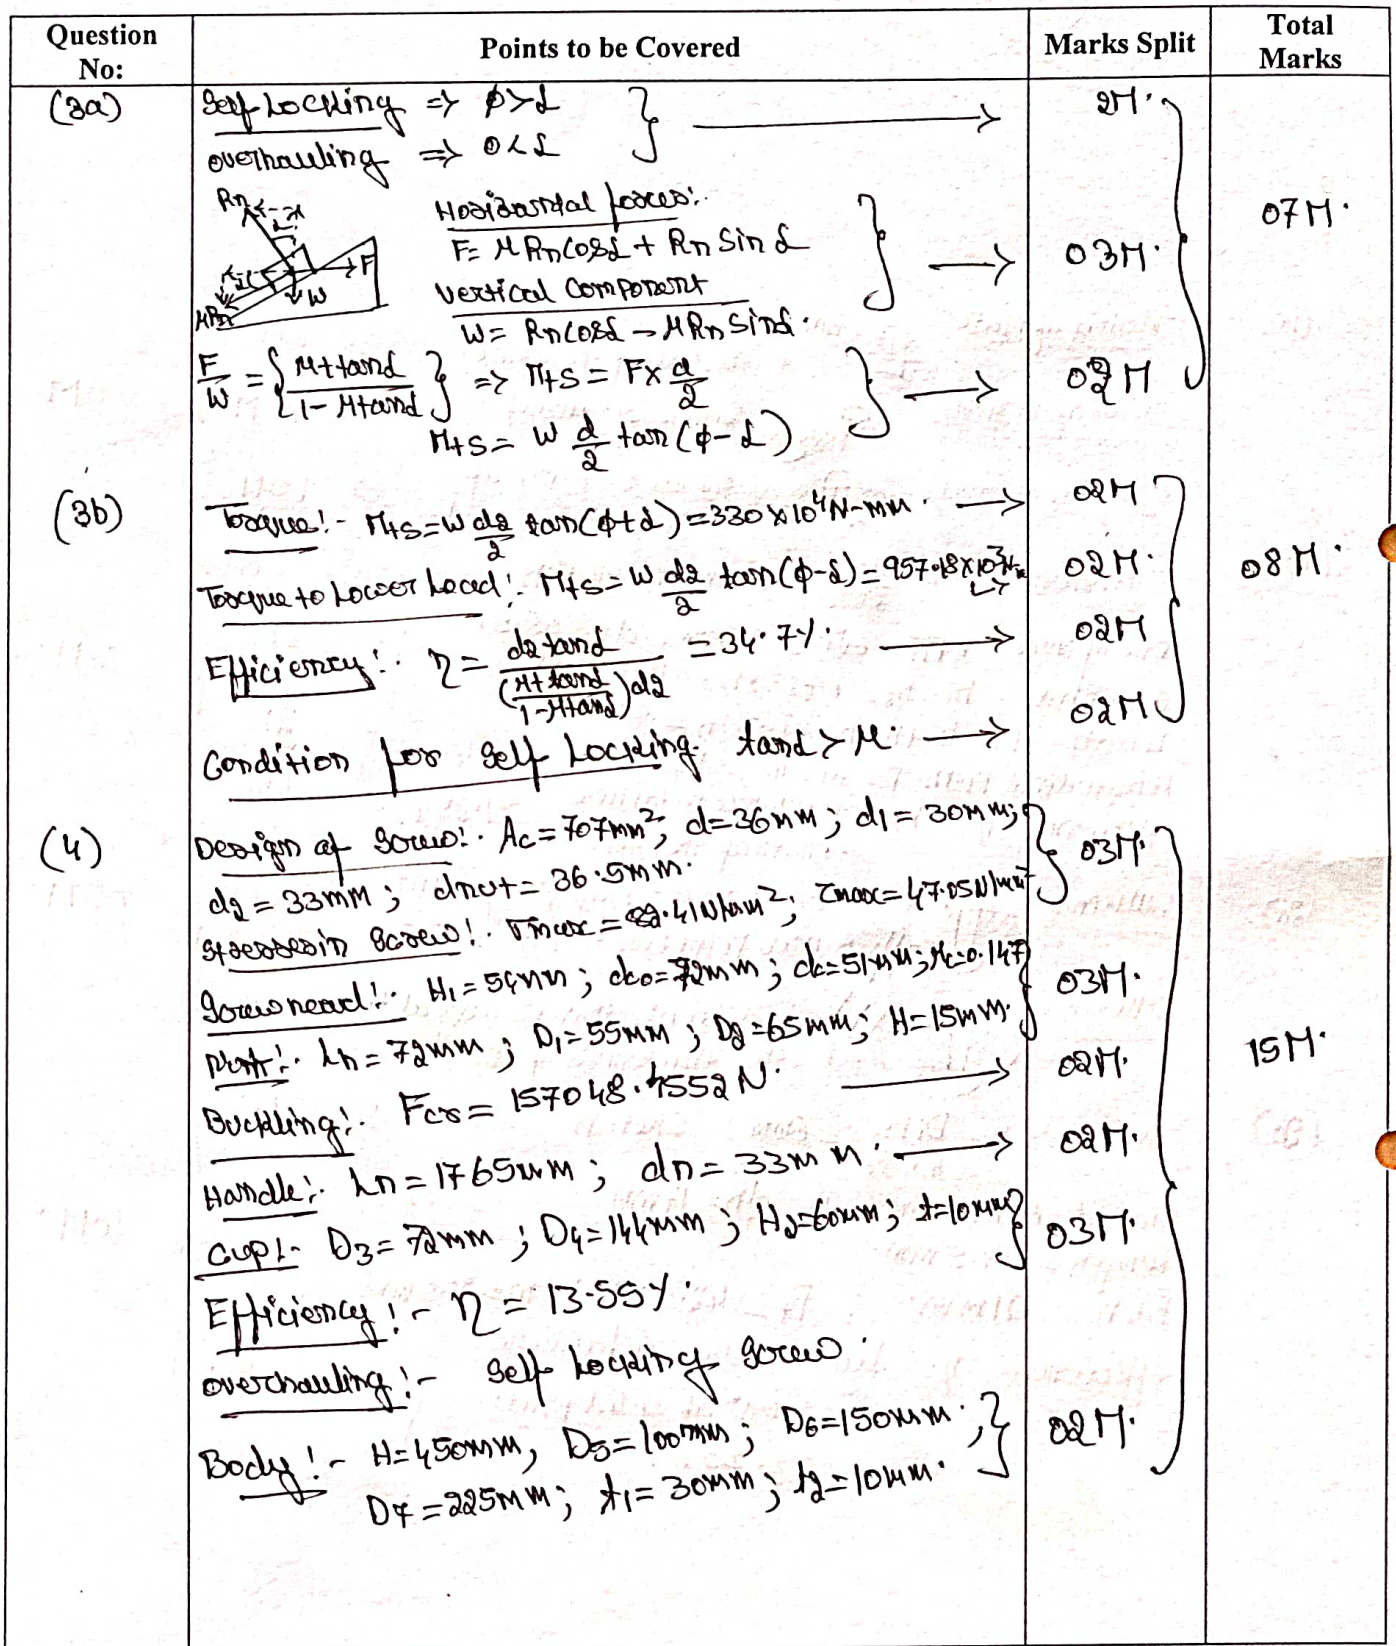 Question No:
Points to be Covered
Marks Split
Total Marks
(3a)
Self Locking => φ>α
2M.
overhauling => O<α
Rn
α
F
W
μRn
Horizontal forces:
F= μRnCosα + Rn Sin α
03M.
07M.
Vertical Component
W= RnCosα - μRn Sinα.
F/W = {μ+tanα / 1-μtanα} => Mts = F x d/2
02M
Mts = W d/2 tan(φ-α)
(3b)
Torque:- Mts=W d2/2 tan(φ+α)=330x10⁴N-mm.
02M
Torque to Lower Load:. Mts=W d2/2 tan(φ-α)=957.18x10³
02M.
08M.
Efficiency:. η = d2 tanα / (μ+tanα / 1-μtanα)d2 = 34.7%.
02M
Condition for Self Locking. tanα > μ.
02M
(4)
Design of Screw:. Ac=707mm², d=36mm; d1=30mm;
03M.
d2=33mm; dnut=36.5mm.
Stresses in Screw:. σmax= .41N/mm²; τmax=47.05N/mm²
Screw head:. H1=54mm; dco=72mm; dc=51mm; μc=0.147
03M.
Nut:. Ln=72mm; D1=55mm; D2=65mm; H=15mm.
15M.
Buckling:. Fcr= 157048.4552N.
02M.
Handle:. Ln=1765mm; dn=33mm.
02M.
Cup:- D3=72mm; D4=144mm; H2=60mm; t=10mm
03M.
Efficiency:- η = 13.55%.
overhauling:- Self Locking Screw.
Body:- H=450mm, D5=100mm; D6=150mm.;
02M.
D7=225mm; t1=30mm; t2=10mm.